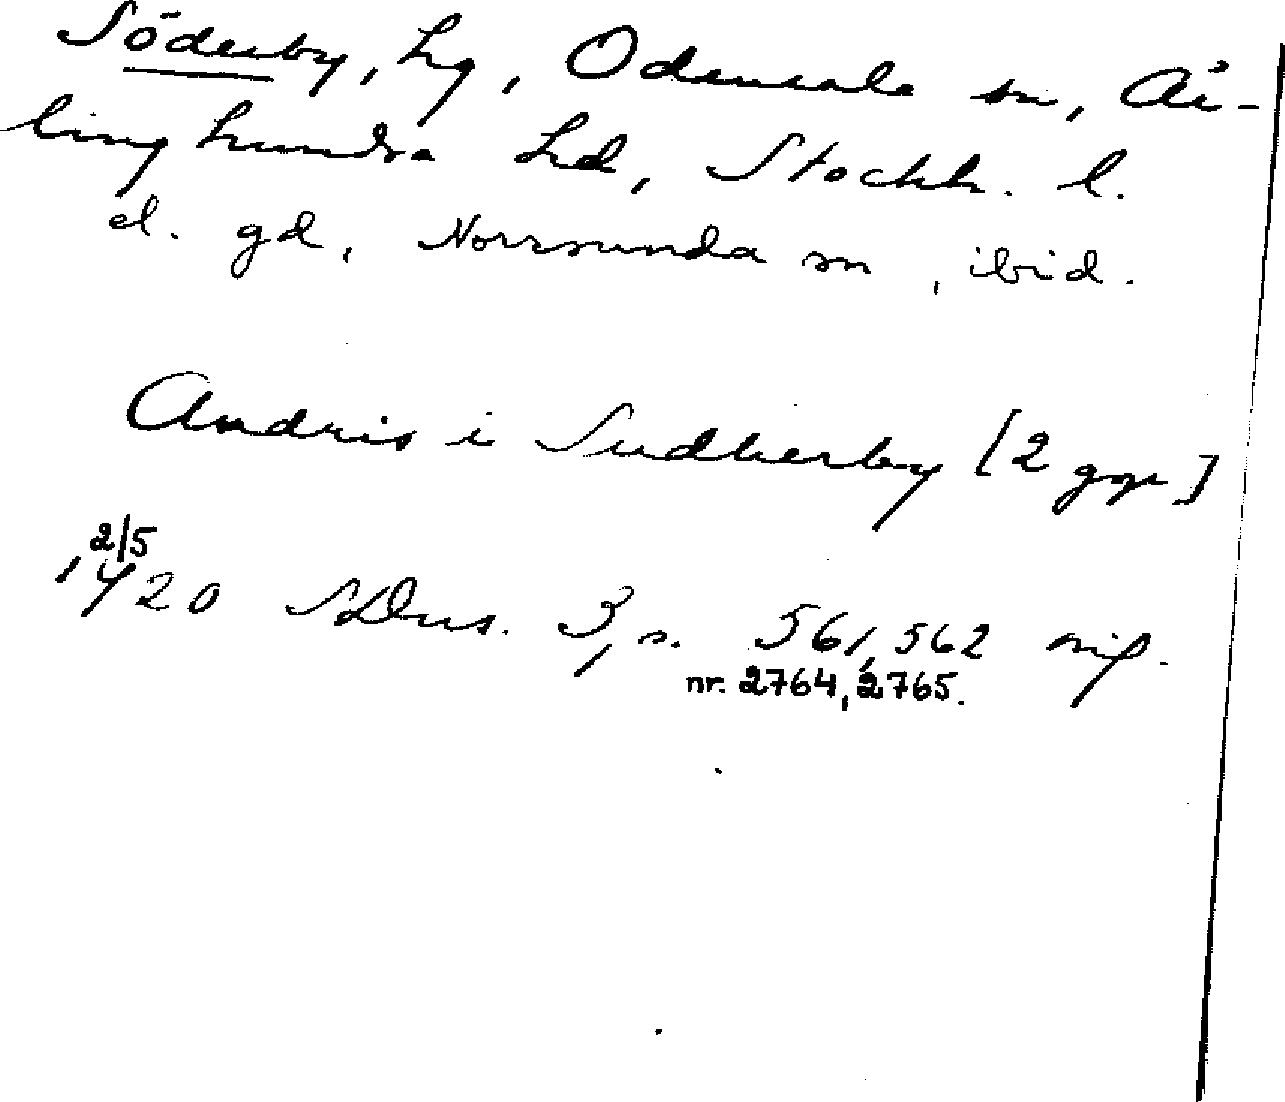 Söderby, hg, Odensala sn, Är-
linghundra hd, Stockh. l.
el. gd, Norrsunda sn, ibid.
Andris i Sudherby [2 ggr]
2/5
1420 SDns. 3, s. 561, 562
nr. 2764, 2765.